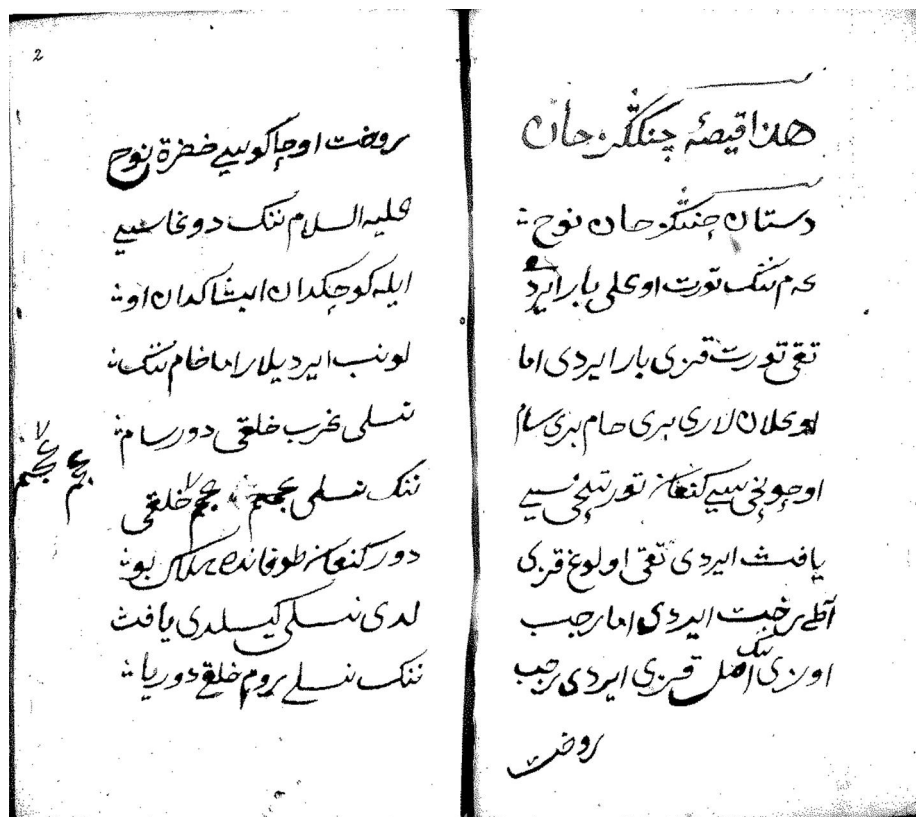 هذا قيصهٔ چنگگز خان
دستان چنگگز خان نوح
عم ننک تورت اوغلی بار ایردی
تقی تورت قزی بار ایردی اما
اوغلان لاری بری حام بری سام
اوچونچی سی کنعان تورتنچی سی
یافث ایردی تقی اولوغ قزی
آطی رخبت ایردی اما رجب
اوزی ننک اصل قزی ایردی رجب
روخت
2
روخت اوچاکوسی خضرة نوح
علیه السلام ننک دوغاسی
ایله کوچکدان ایشاکدان او
لونب ایردیلار اما خام ننک
نسلی غرب خلقی دور سام
ننک نسلی عجم عجم خلقی
عجم عجم
دور کنعان طوفانده هلاک بو
لدی نسلی کیسلدی یافث
ننک نسلی روم خلقی دور یا